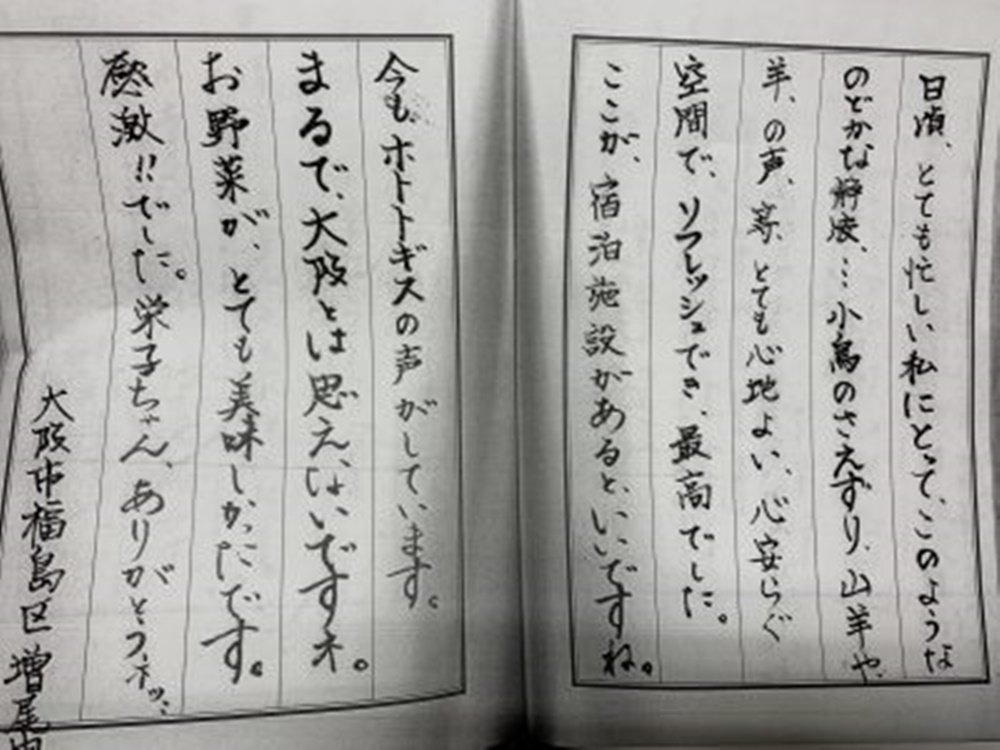 日頃、とても忙しい私にとって、このような
のどかな静寂、…小鳥のさえずり、山羊や
羊、の声、等、とても心地よい、心安らぐ
空間で、リフレッシュでき、最高でした。
ここが、宿泊施設があると、いいですね。
今もホトトギスの声がしています。
まるで、大阪とは思えないですネ。
お野菜が、とても美味しかったです。
感激!!でした。栄子ちゃん、ありがとうネッ、
大阪市福島区 増尾